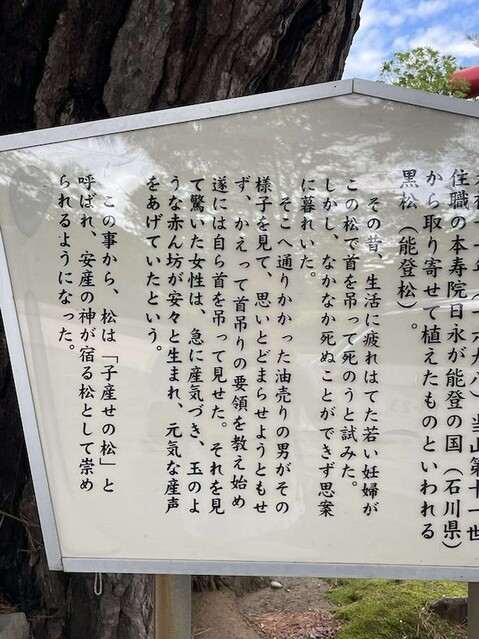 年（一六九八）当山第十一世
住職の本寿院日永が能登の国（石川県）
から取り寄せて植えたものといわれる
黒松（能登松）。
その昔、生活に疲れはてた若い妊婦が
この松で首を吊って死のうと試みた。
しかし、なかなか死ぬことができず思案
に暮れいた。
そこへ通りかかった油売りの男がその
様子を見て、思いとどまらせようともせ
ず、かえって首吊りの要領を教え始め
遂には自ら首を吊って見せた。それを見
て驚いた女性は、急に産気づき、玉のよ
うな赤ん坊が安々と生まれ、元気な産声
をあげていたという。
この事から、松は「子産せの松」と
呼ばれ、安産の神が宿る松として崇め
られるようになった。